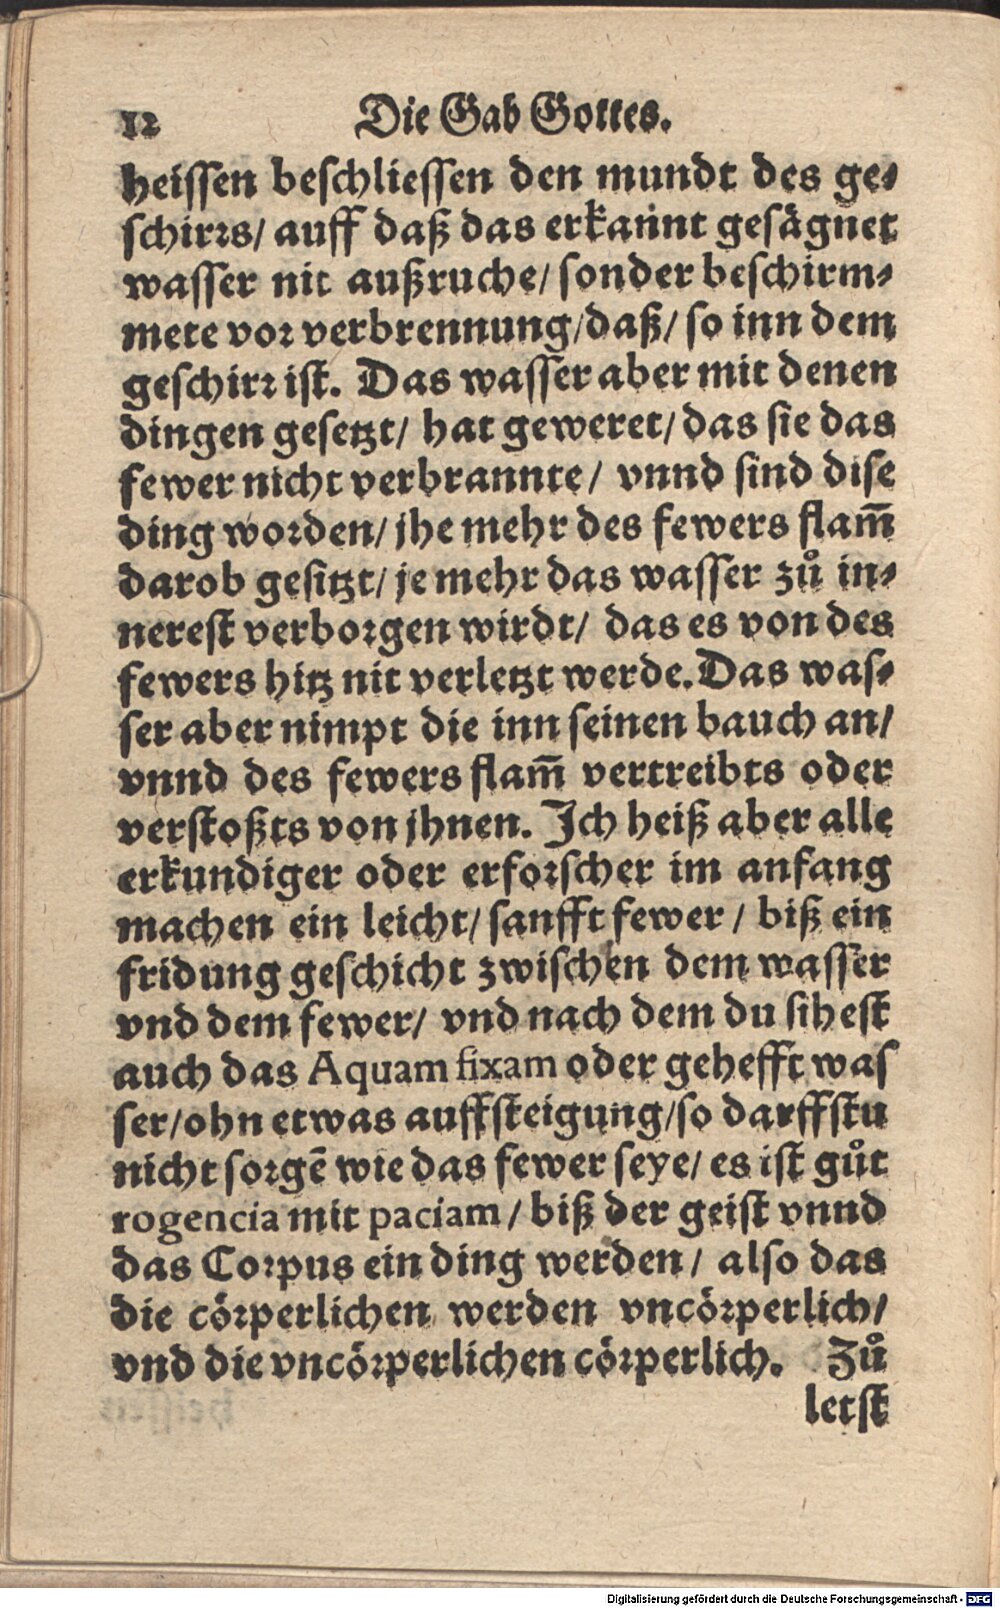 12 Die Gab Gottes.
heissen beschliessen den mundt des ge-
schirrs/ auff daß das erkannt gesägnet
wasser nit außruche/ sonder beschirm-
mete vor verbrennung/daß/ so inn dem
geschirr ist. Das wasser aber mit denen
dingen gesetzt/ hat geweret/ das sie das
fewer nicht verbrannte/ vnnd sind dise
ding worden/ jhe mehr des fewers flam̃
darob gesitzt/ je mehr das wasser zů in-
nerest verborgen wirdt/ das es von des
fewers hitz nit verletzt werde. Das was-
ser aber nimpt die inn seinen bauch an/
vnnd des fewers flam̃ vertreibts oder
verstoßts von jhnen. Ich heiß aber alle
erkundiger oder erforscher im anfang
machen ein leicht/ sanfft fewer / biß ein
fridung geschicht zwischen dem wasser
vnd dem fewer/ vnd nach dem du sihest
auch das Aquam fixam oder gehefft was
ser/ohn etwas auffsteigung/so darffstu
nicht sorgẽ wie das fewer seye/ es ist gůt
rogencia mit paciam / biß der geist vnnd
das Corpus ein ding werden / also das
die cörperlichen werden vncörperlich/
vnd die vncörperlichen cörperlich. Zů
letst
Digitalisierung gefördert durch die Deutsche Forschungsgemeinschaft - DFG